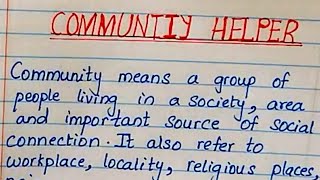 COMMUNTIY HELPER
Community means a group of
people living in a society, area
and important source of social
connection. It also refer to
workplace, locality, religious places,